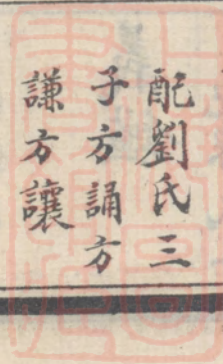 配劉氏三
子方誦方
謙方讓